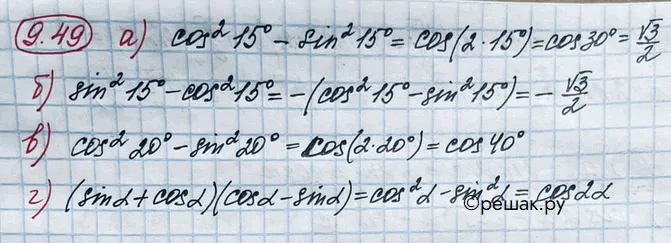 9.49 а) cos² 15° - sin² 15° = cos(2·15°) = cos30° = √3/2
б) sin² 15° - cos² 15° = -(cos² 15° - sin² 15°) = - √3/2
в) cos² 20° - sin² 20° = cos(2·20°) = cos 40°
г) (sinα + cosα)(cosα - sinα) = cos²α - sin²α = cos2α
©решак.ру